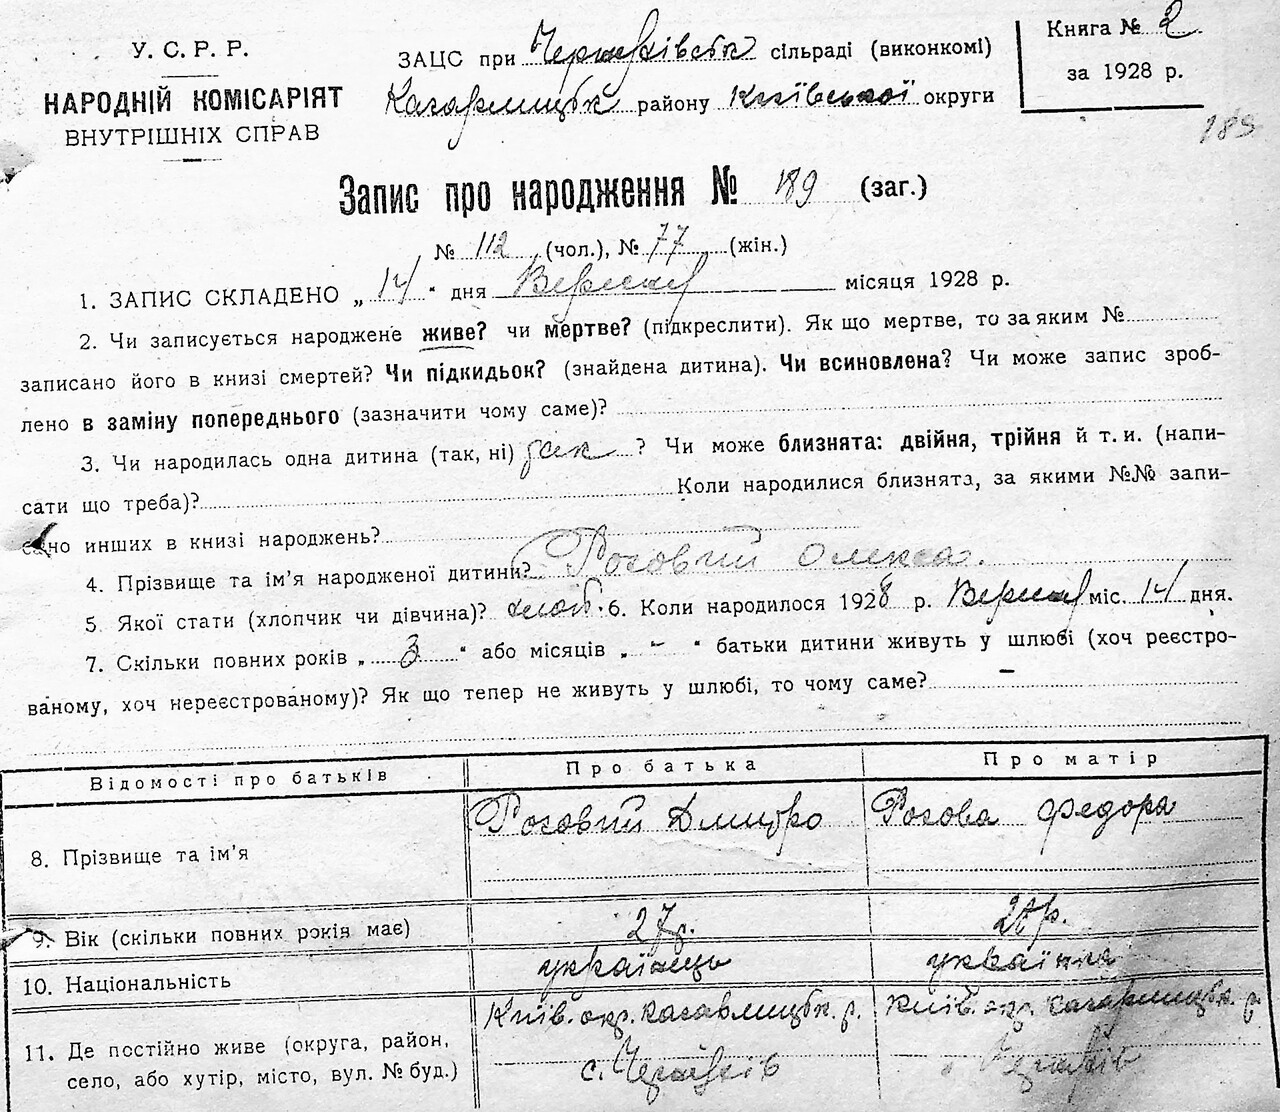 У. С. Р. Р.
НАРОДНІЙ КОМІСАРІЯТ
ВНУТРІШНІХ СПРАВ
ЗАЦС при Черняхівськ сільраді (виконкомі)
Кагарлицьк району Київської округи
Книга № 2
за 1928 р.
189
Запис про народження № 189 (заг.)
№ 112 (чол.), № 77 (жін.)
1. ЗАПИС СКЛАДЕНО „ 14 " дня Вересня місяця 1928 р.
2. Чи записується народжене живе? чи мертве? (підкреслити). Як що мертве, то за яким №
записано його в книзі смертей? Чи підкидьок? (знайдена дитина). Чи всиновлена? Чи може запис зроб-
лено в заміну попереднього (зазначити чому саме)?
3. Чи народилась одна дитина (так, ні) так ? Чи може близнята: двійня, трійня й т. и. (напи-
сати що треба)? Коли народилися близнята, за якими №№ запи-
сано инших в книзі народжень?
4. Прізвище та ім'я народженої дитини? Роговий Олекса.
5. Якої стати (хлопчик чи дівчина)? хлоп. 6. Коли народилося 1928 р. Вересня міс. 14 дня.
7. Скільки повних років „ 3 " або місяців „ - " батьки дитини живуть у шлюбі (хоч реєстро-
ваному, хоч нереєстрованому)? Як що тепер не живуть у шлюбі, то чому саме?
Відомості про батьків Про батька Про матір
8. Прізвище та ім'я Роговий Дмитро Рогова Федора
9. Вік (скільки повних років має) 27 р. р.
10. Національність українець українка
11. Де постійно живе (округа, район, Київ. окр. Кагарлицьк. р. Київ. окр. Кагарлицьк. р.
село, або хутір, місто, вул. № буд.) с. Черняхів Черняхів